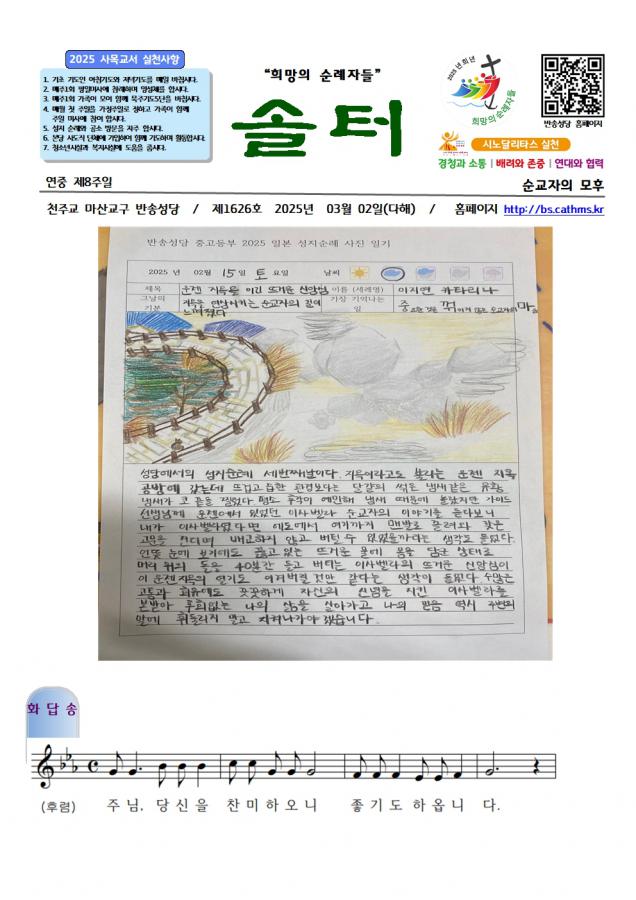 2025 사목교서 실천사항
1. 기초 기도인 아침기도와 저녁기도를 매일 바칩시다.
2. 매주1회 평일미사에 참례하며 영성체를 합시다.
3. 매주1회 가족이 모여 함께 묵주기도5단을 바칩시다.
4. 매월 첫 주일을 가정주일로 정하고 가족이 함께
주일 미사에 참여 합시다.
5. 성지 순례와 공소 방문을 자주 합시다.
6. 본당 사도직 단체에 가입하여 함께 기도하며 활동합시다.
7. 청소년시설과 복지시설에 도움을 줍시다.
“희망의 순례자들”
솔터
2025년 희년
희망의 순례자들
반송성당 홈페이지
시노달리타스 실천
경청과 소통 | 배려와 존중 | 연대와 협력
연중 제8주일
순교자의 모후
천주교 마산교구 반송성당 / 제1626호 2025년 03월 02일(다해) / 홈페이지 http://bs.cathms.kr
반송성당 중고등부 2025 일본 성지순례 사진 일기
2025 년 02월 15일 토 요일 날씨
제목 운젠 지옥을 이긴 뜨거운 신앙심 이름 (세례명) 이지연 카타리나
그날의 기분 지옥을 연상시키는 순교자의 길이 느껴졌다 가장 기억나는 일 중요한 것은 꺾이지 않은 순교자의 마음
성당에서의 성지순례 세번째날이다. 지옥이라고도 불리는 운젠 지옥
공방에 갔는데 뜨겁고 습한 환경보다는 달걀의 썩은 냄새같은 유황
냄새가 코 끝을 찔렀다. 평소 후각이 예민해 냄새 때문에 놀랐지만 가이드
선생님께 운젠에서 있었던 이사벨라 순교자의 이야기를 듣다보니
내가 이사벨라였다면 에도에서 여기까지 맨발로 끌려와 갖은
고문을 견디며 배교하지 않고 버틸 수 있었을까라는 생각도 들었다.
언뜻 눈에 보기에도 끓고 있는 뜨거운 물에 몸을 담근 상태로
머리 위의 돌을 40분간 들고 버티는 이사벨라의 뜨거운 신앙심이
이 운젠지옥의 열기도 이겨버릴 것만 같다는 생각이 들었다. 수많은
고통과 회유에도 꿋꿋하게 자신의 신념을 지킨 이사벨라를
본받아 후회없는 나의 삶을 살아가고 나의 믿음 역시 주변의
말에 휘둘리지 않고 지켜나가야 겠습니다.
화 답 송
(후렴) 주 님, 당 신 을 찬 미 하 오 니 좋 기 도 하 옵 니 다.